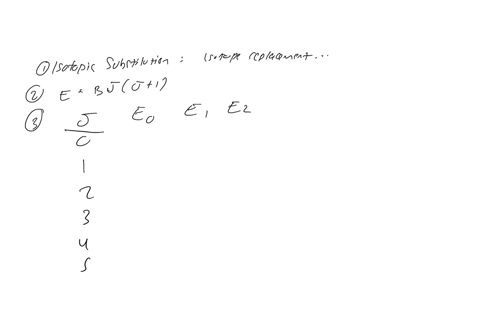 ① Isotopic Substilution : isotope replacement...
② E = B J (J+1)
③ J E₀ E₁ E₂
0
1
2
3
4
5